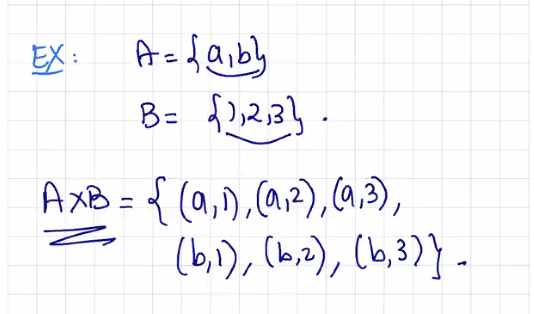 EX: A = {a,b}
B = {1,2,3}.
A×B = { (a,1), (a,2), (a,3),
(b,1), (b,2), (b,3)}.